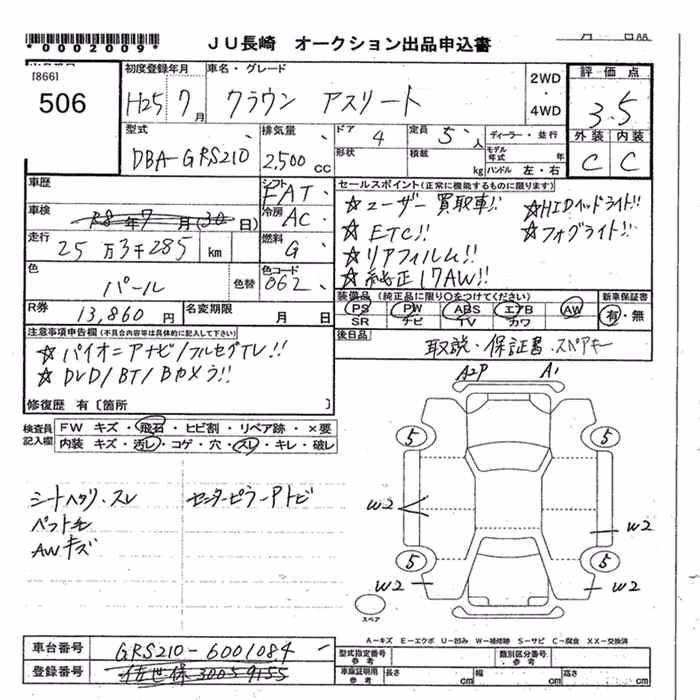 *0002009*
JU長崎 オークション出品申込書
[866]
506
初度登録年月
H25 7月
車名・グレード
クラウン アスリート
2WD
・
4WD
評価点
3.5
外装 内装
C C
型式
DBA-GRS210
排気量
2,500 cc
ドア 4
形状
定員 5人
積載 kg
ディーラー・並行
モデル年式 年
ハンドル 左・右
車歴
シフト FAT
車検
R8年7月(30日)
冷房 AC
走行
25万3千285 km
燃料 G
色
パール
色替
色コード 062
R券
13,860円
名変期限
月 日
セールスポイント(正常に機能するものに限ります)
☆ユーザー買取車!! ☆HIDヘッドライト!!
☆ETC!! ☆フォグライト!!
☆リアフィルム!!
☆純正17AW!!
装備品(純正品に限り○をつけてください)
PS PW ABS エアB AW
SR ナビ TV カワ
新車保証書
有・無
後日品
取説・保証書・スペアキー
注意事項申告欄(不具合内容等は具体的に記入して下さい)
☆パイオニアナビ/フルセグTV!!
☆DVD/BT/Bカメラ!!
修復歴 有〔箇所 〕
検査員記入欄
FW キズ・飛石・ヒビ割・リペア跡・×要
内装 キズ・汚レ・コゲ・穴・スレ・キレ・破レ
シートヘタリ・スレ センターピラーアトビ
AWキズ
A2P A1
5 5
W2 W2
5 5
W2 W2
スペア
A-キズ E-エクボ U-凹み W-補修跡 S-サビ C-腐食 XX-交換済
車台番号
GRS210-6001084
登録番号
佐世保300ち9155
型式指定番号
参考
類別区分番号
参考
車庫証明用
参考
長さ cm
幅 cm
高さ cm